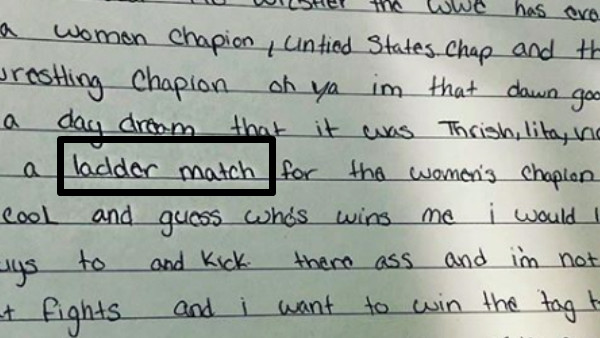 the WWE has
a women chapion, Untied States chap and
chapion oh ya im that dawn
a day dream that it was Thrish, lita,
a ladder match for the women's chapion
cool and guess who's wins me i would
to and kick there ass and i'm not
fights and i want to win the tag